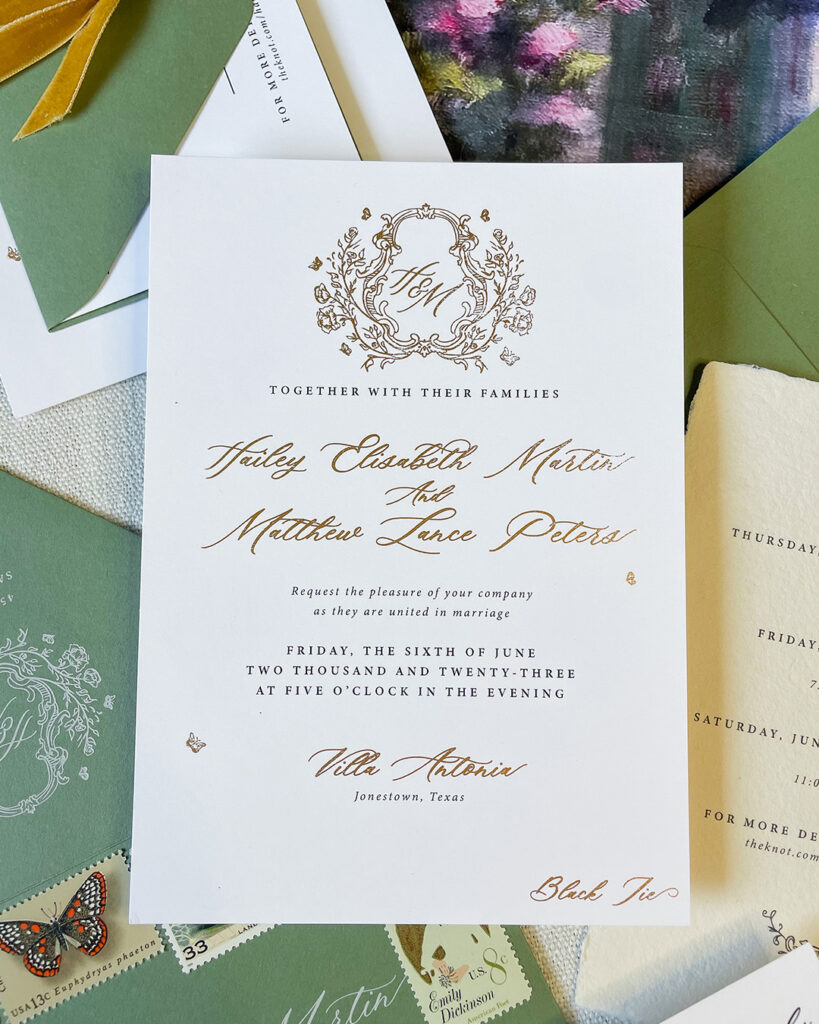 FOR MORE DE
theknot.com/ha
H&M
TOGETHER WITH THEIR FAMILIES
Hailey Elisabeth Martin
And
Matthew Lance Peters
Request the pleasure of your company
as they are united in marriage
FRIDAY, THE SIXTH OF JUNE
TWO THOUSAND AND TWENTY-THREE
AT FIVE O'CLOCK IN THE EVENING
Villa Antonia
Jonestown, Texas
Black Tie
THURSDAY,
FRIDAY,
SATURDAY, JUN
11:0
FOR MORE DE
theknot.com
USA13c Euphydryas phaeton
33
U.S. 8c
Emily
Dickinson
American Poet
Martin